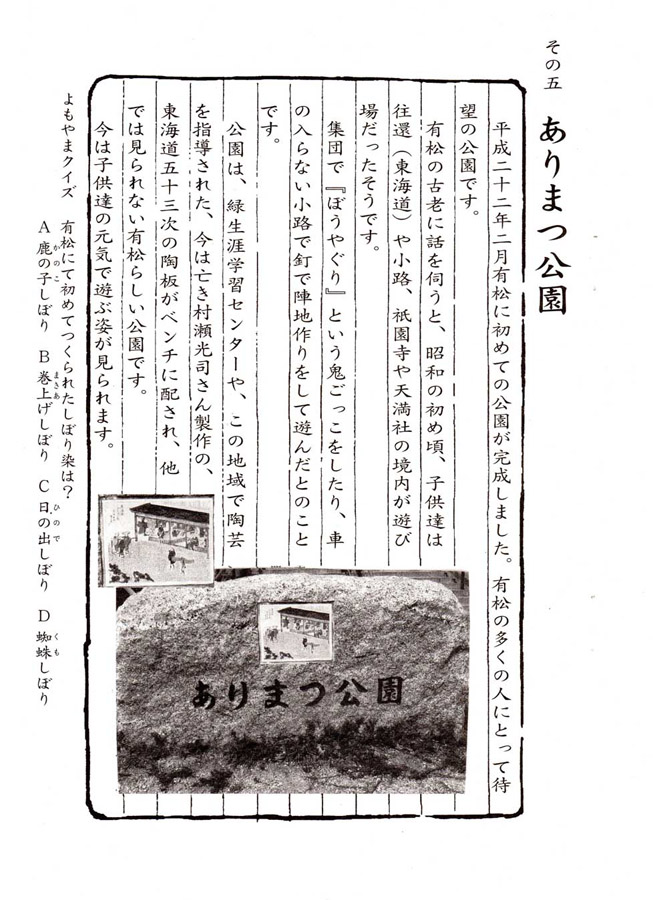 その五　ありまつ公園
平成二十二年二月有松に初めての公園が完成しました。有松の多くの人にとって待
望の公園です。
有松の古老に話を伺うと、昭和の初め頃、子供達は
往還（東海道）や小路、祇園寺や天満社の境内が遊び
場だったそうです。
集団で『ぼうやぐり』という鬼ごっこをしたり、車
の入らない小路で釘で陣地作りをして遊んだとのこと
です。
公園は、緑生涯学習センターや、この地域で陶芸
を指導された、今は亡き村瀬光司さん製作の、
東海道五十三次の陶板がベンチに配され、他
では見られない有松らしい公園です。
今は子供達の元気で遊ぶ姿が見られます。
ありまつ公園
よもやまクイズ　有松にて初めてつくられたしぼり染は？
A 鹿の子しぼり　B 巻上げしぼり　C 日の出しぼり　D 蜘蛛しぼり
かのこ　まきあ　ひので　くも